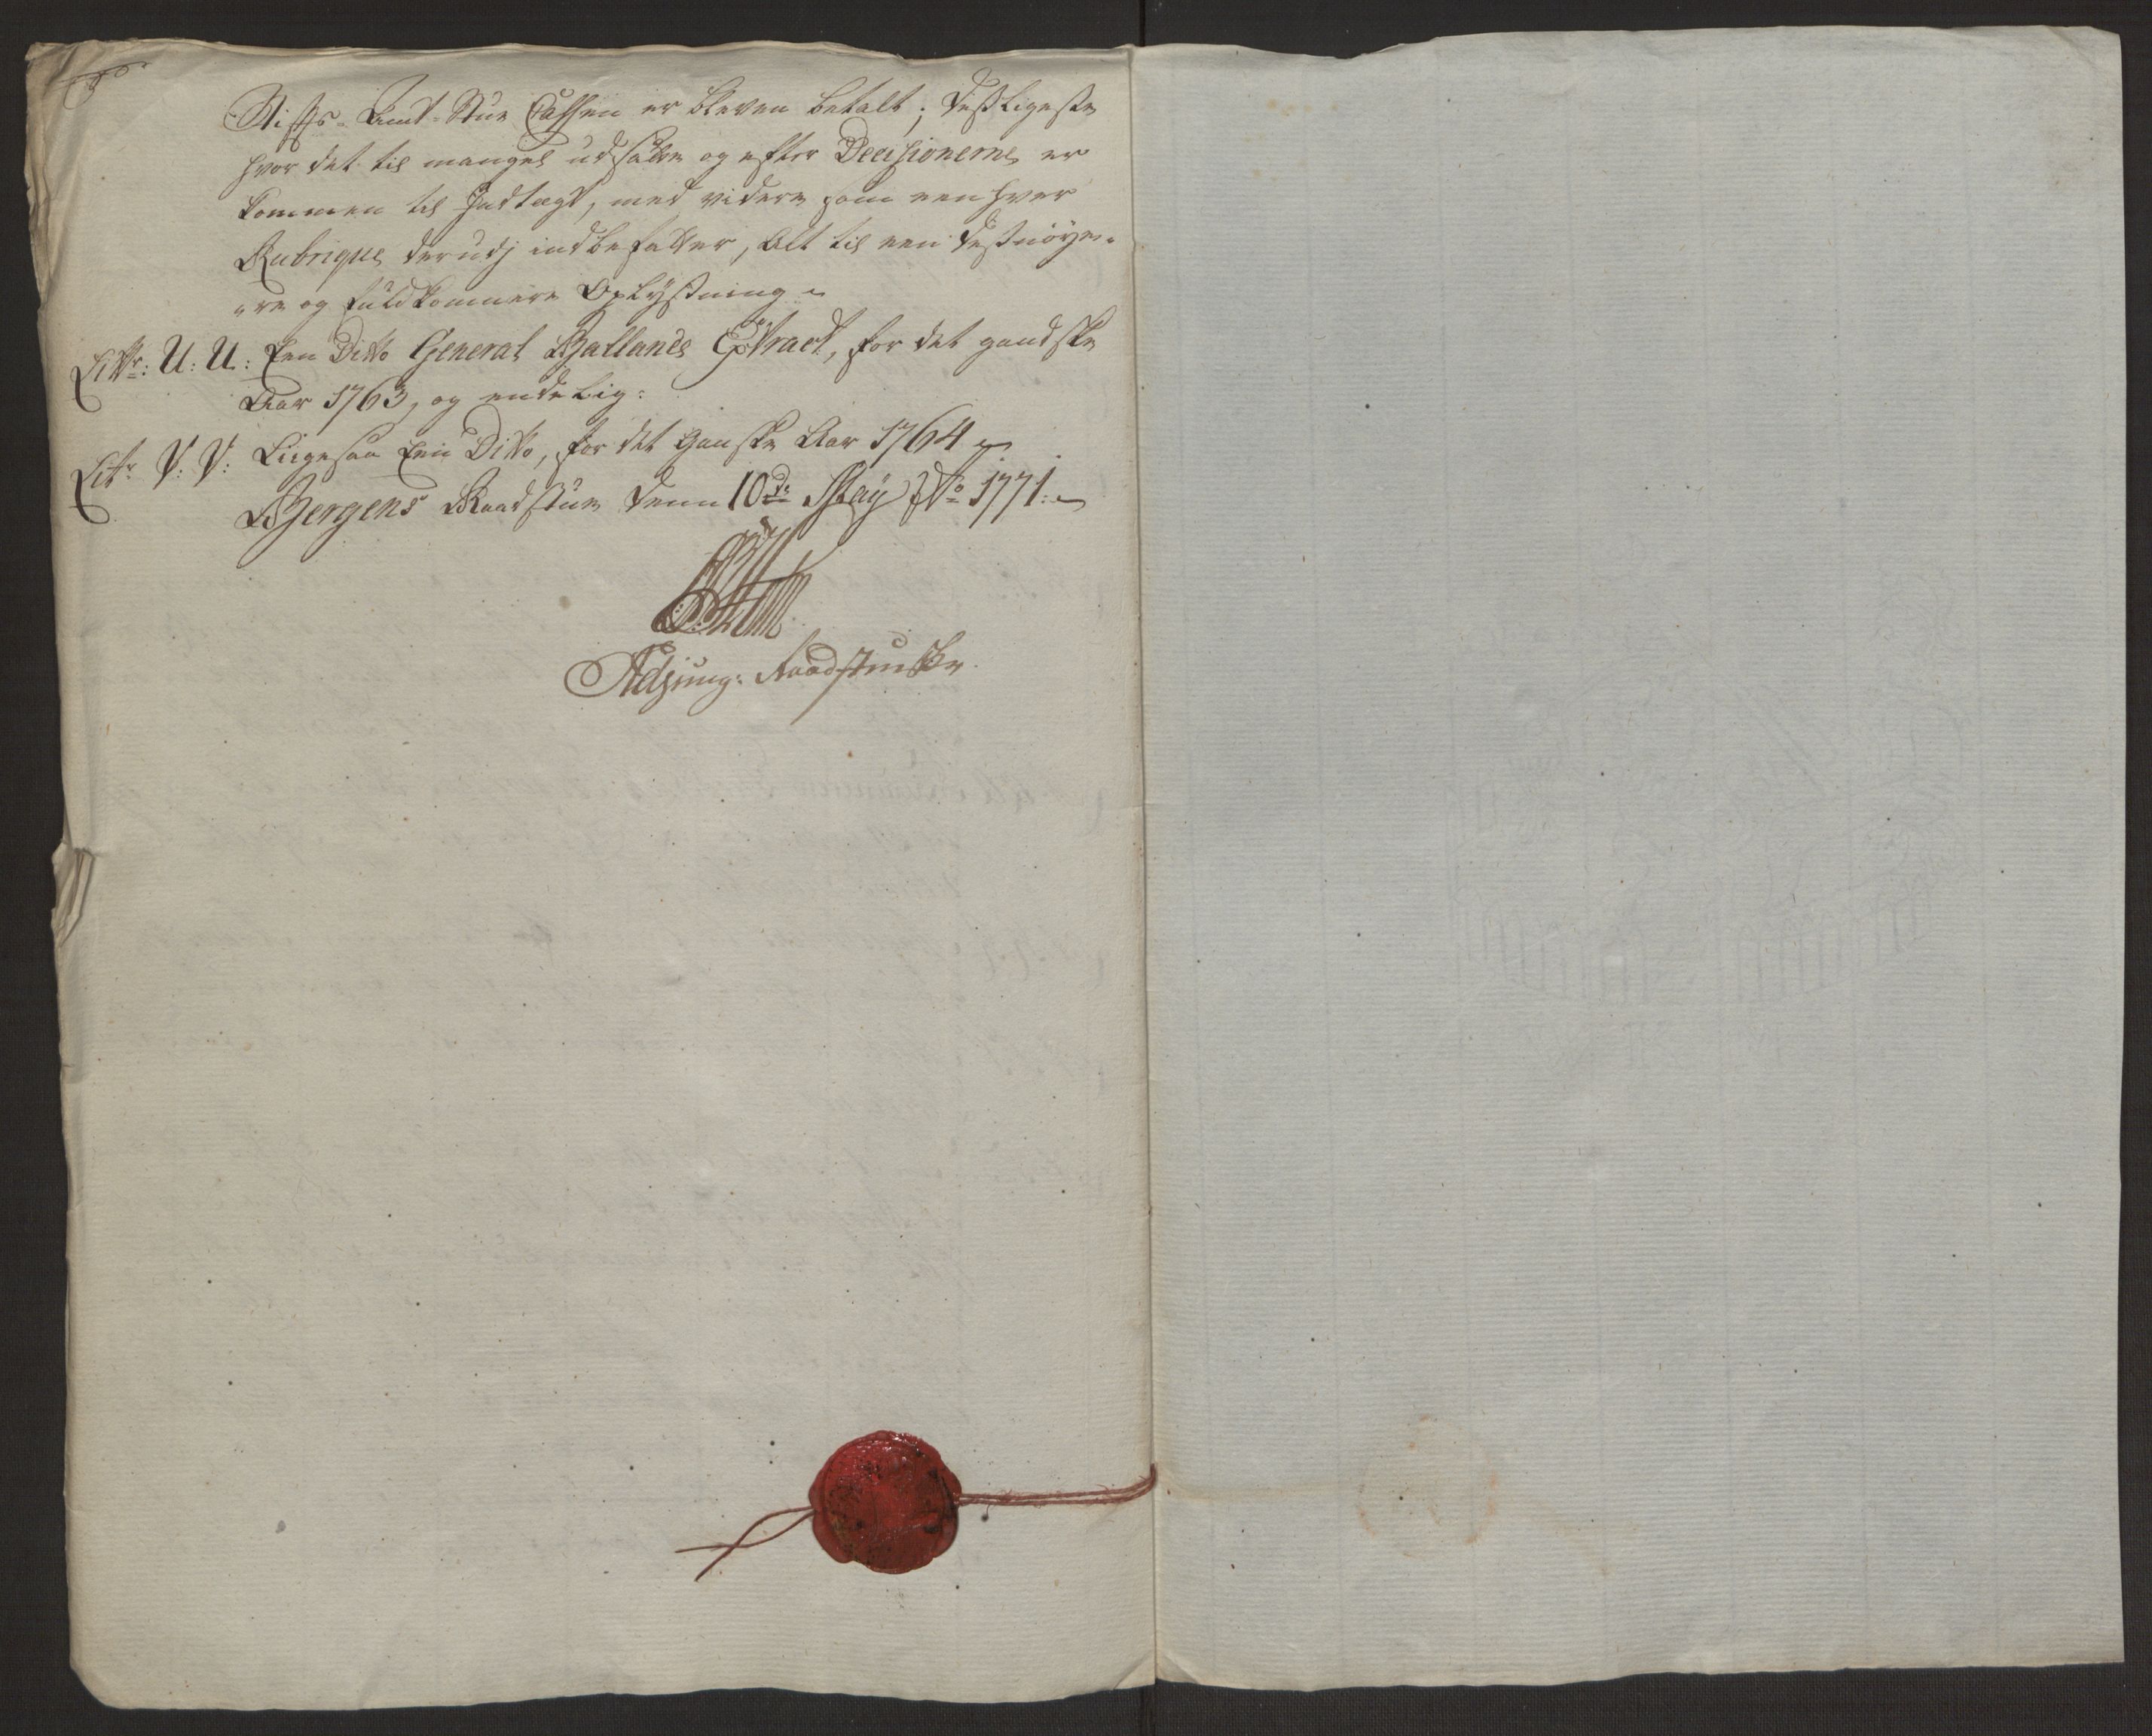 Stifts-Amt-Stue Cassen er bleven betalt; desligeste
hvor det til mangel udsatte og efter Decisionerne er
kommen til Indtægt, med videre som een hver
Rubrique derudj indbefatter, Alt til een desnöye-
-re og fuldkomnere Oplysning
Littr: U: U: Een Ditto General Ballance Extract, for det gandske
Aar 1763, og endelig:
Litr V: V: Liigesaa Een Ditto, for det Ganske Aar 1764
Bergens Raadstue denn 10de May Ao 1771.
Adjung: Raadstueskr